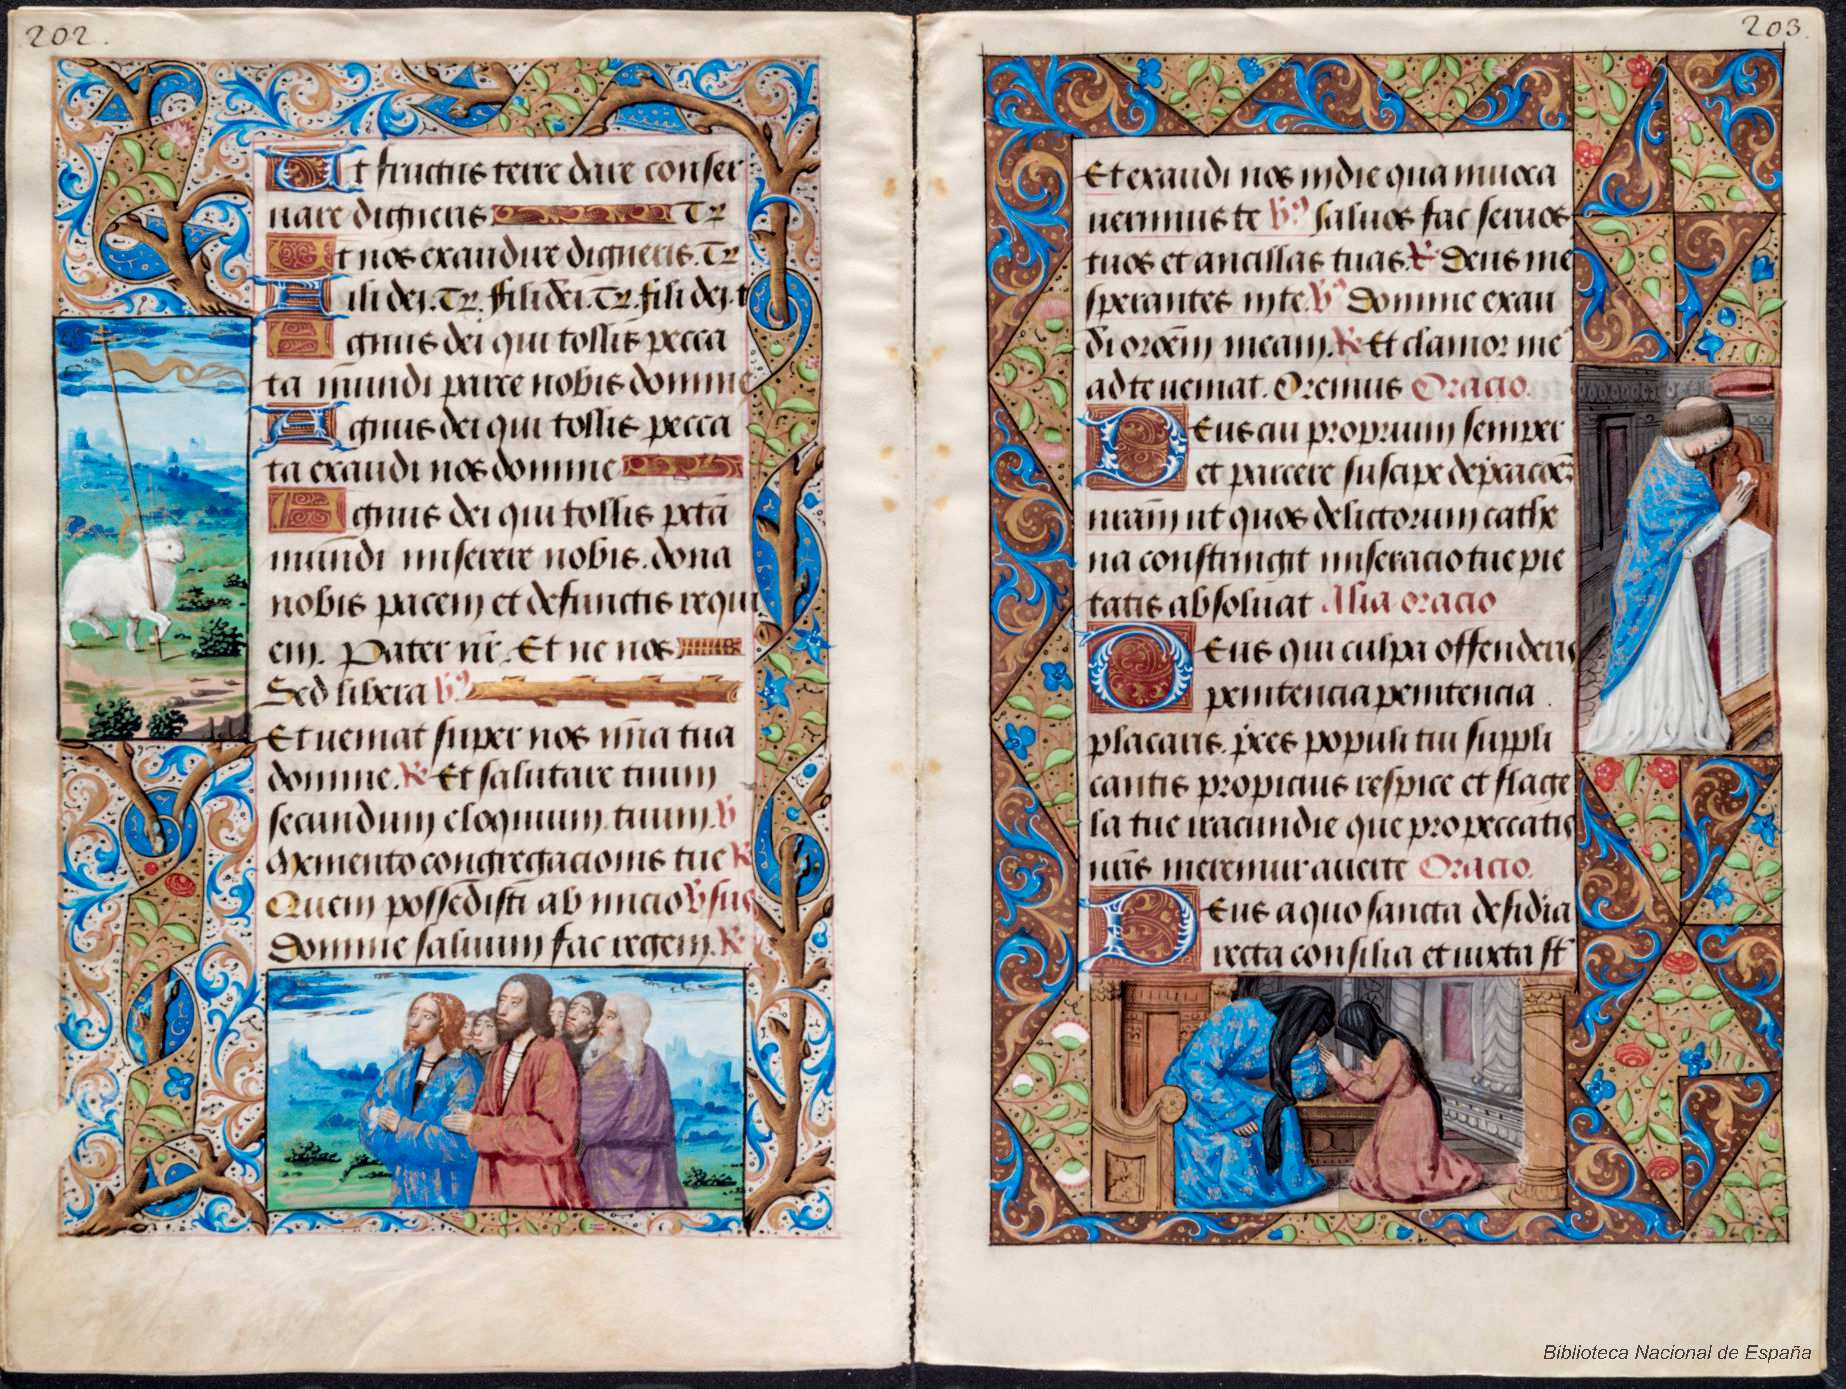 202.
Ut fructus terre dare conser
uare digneris Te r
Ut nos exaudire digneris. Te r
Fili dei. Te r. fili dei. Te r. fili dei. t
Agnus dei qui tollis pecca
ta mundi parce nobis domine
Agnus dei qui tollis pecca
ta exaudi nos domine
Agnus dei qui tollis pctā
mundi miserere nobis. dona
nobis pacem et defunctis requi
em. Pater nr̄. Et ne nos
Sed libera V̓
Et ueniat super nos mīa tua
domine. R̓ Et salutare tuum
secundum eloquium tuum. V̓
Memento congregacionis tue R̓
Quem possedisti ab inicio V̓ sus
Domine saluum fac regem. R̓
203.
Et exaudi nos in die qua inuoca
uerimus te V̓ Saluos fac seruos
tuos et ancillas tuas. R̓ Deus me
sperantes in te. V̓ Domine exau
di orōem meam. R̓ Et clamor me
ad te ueniat. Oremus Oracio.
Deus cui proprium semper
et parcere suscipe dep̄cacōēz
nrām ut quos delictorum cathe
na constringit miseracio tue pie
tatis absoluat Alia oracio
Deus qui culpa offenderis
penitencia penitencia
placaris. p̄ces populi tui suppli
cantis propicius respice et flage
la tue iracundie que pro peccatis
nr̄is meremur auerte Oracio.
Deus a quo sancta desideria
recta consilia et iuxta st
Biblioteca Nacional de España